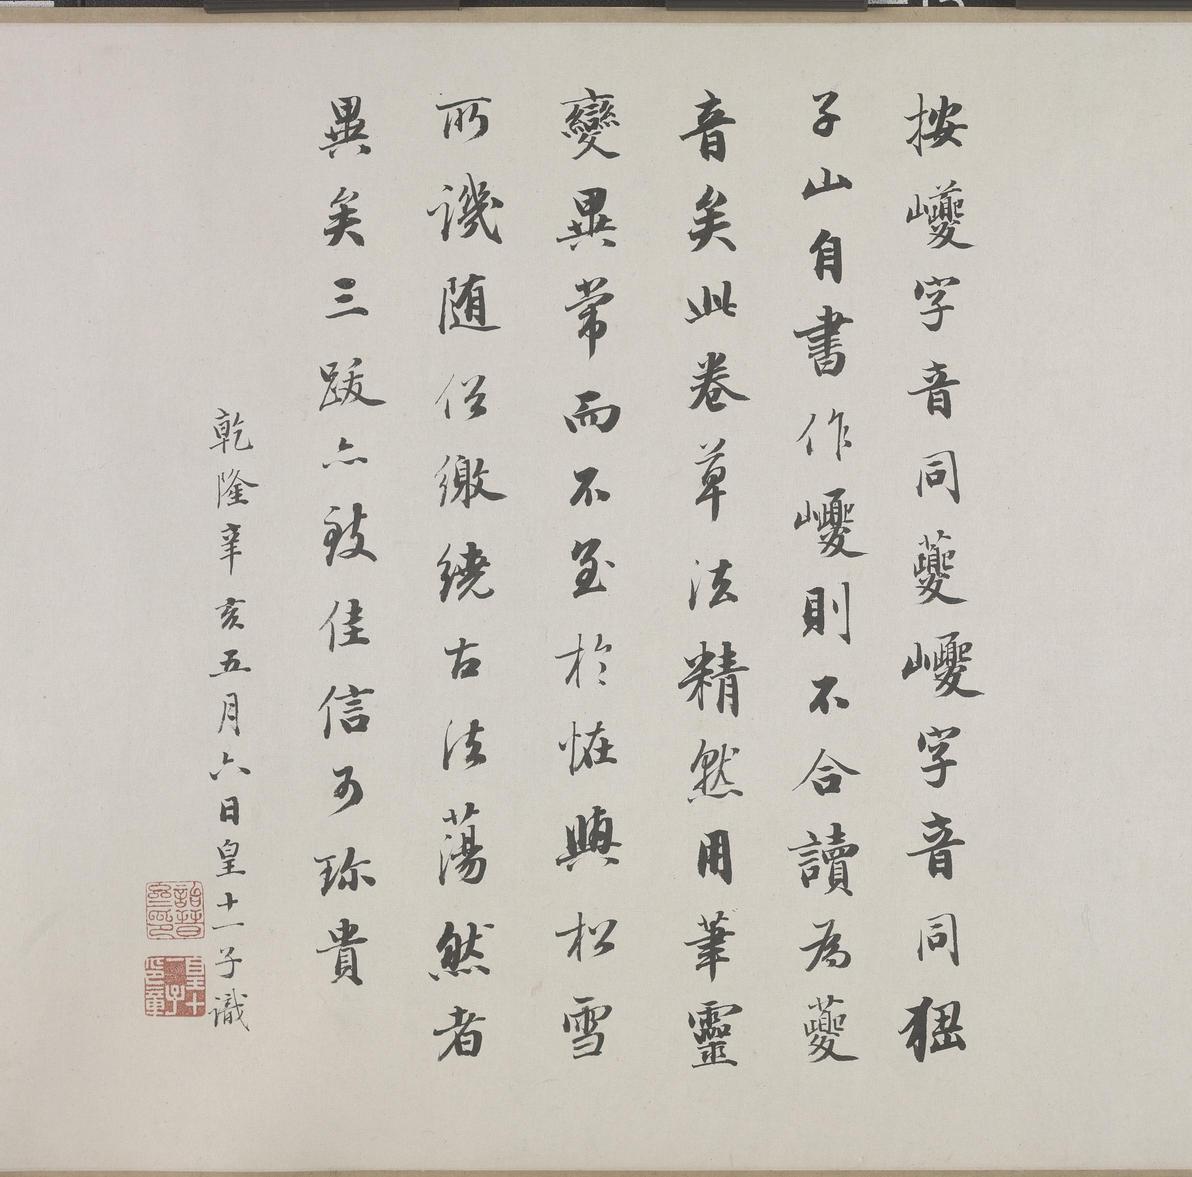 按巙字音同夔巎字音同
子山自書作巎則不合讀為夔
音矣此卷草法精熟用筆靈
變異常而不至於怪與松雪
所譏随俗繳繞古法蕩然者
異矣三跋亦致佳信可珍貴
乾隆辛亥五月六日皇十一子識
詒晉齋印
皇十一子印章